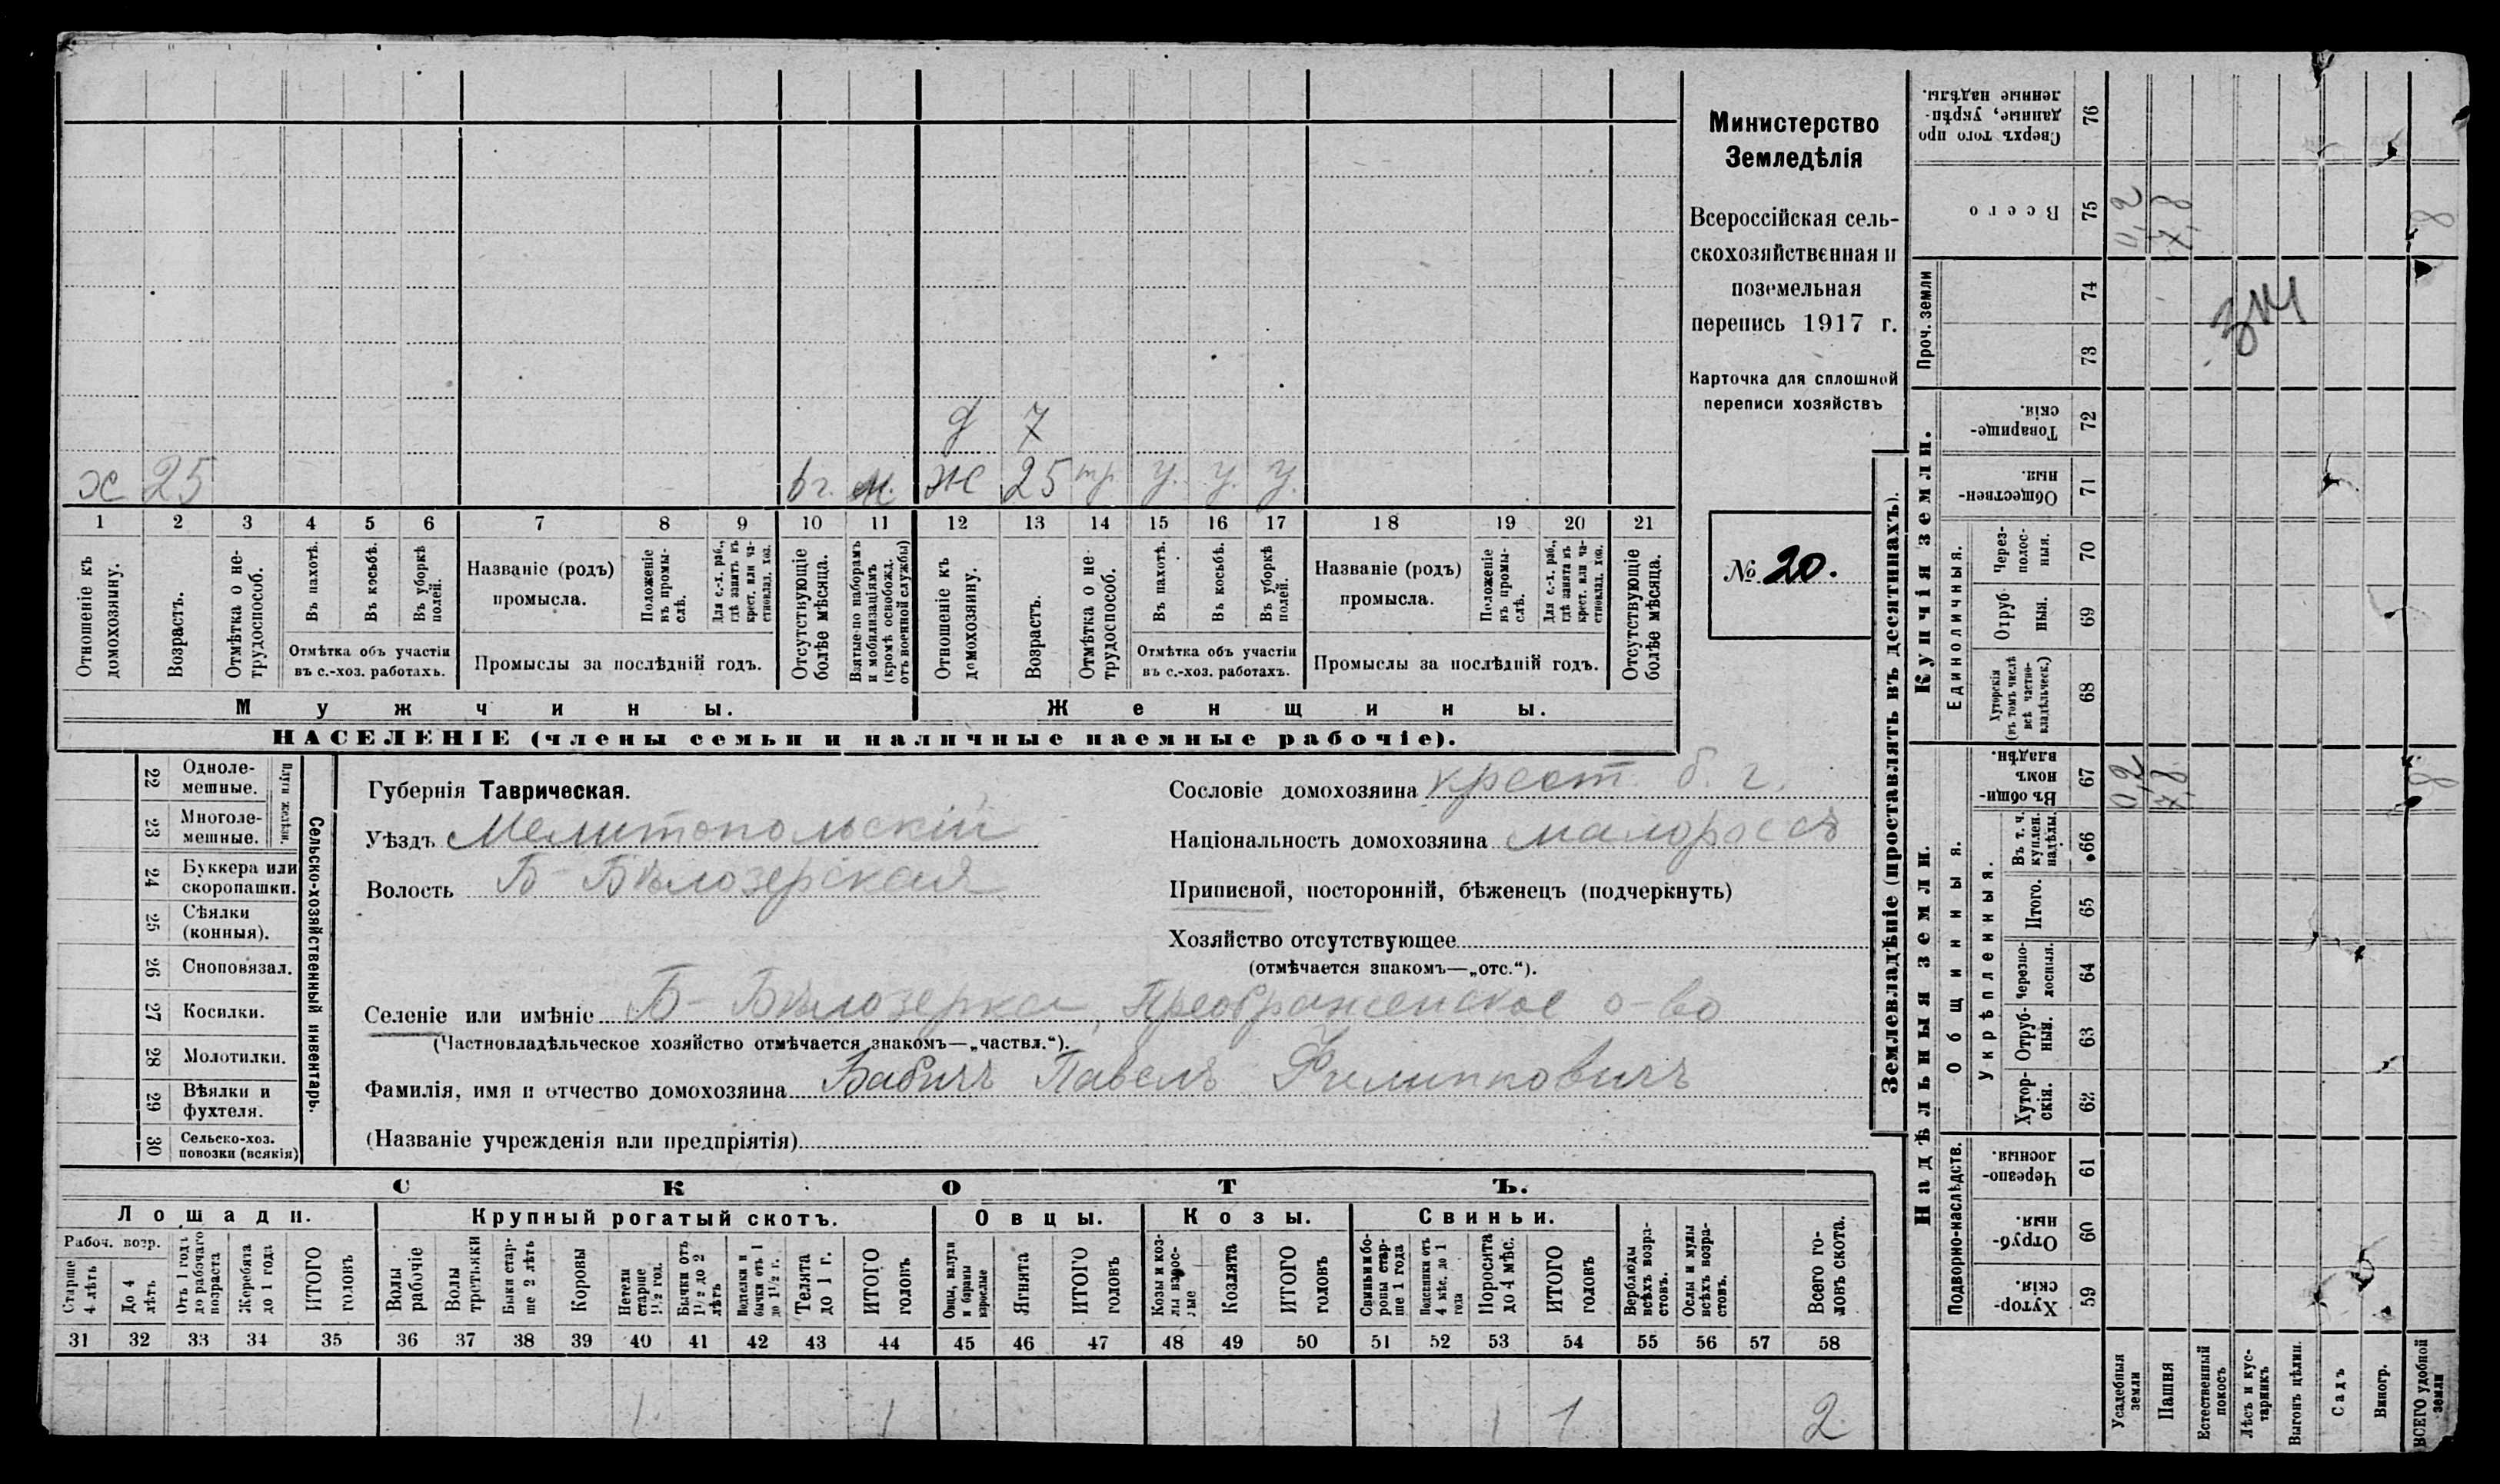 х 25 6 г. м. ж 25 тр. у. у. у.
д 7
1 2 3 4 5 6 7 8 9 10 11 12 13 14 15 16 17 18 19 20 21
Отношеніе къ домохозяину.
Возрастъ.
Отмѣтка о нетрудоспособ.
Въ пахотѣ.
Въ косьбѣ.
Въ уборкѣ полей.
Отмѣтка объ участіи
въ с.-хоз. работахъ.
Названіе (родъ)
промысла.
Положеніе въ промыслѣ.
Для с.-х. раб., гдѣ занятъ въ крест. или частновлад. хоз.
Промыслы за послѣдній годъ.
Отсутствующіе болѣе мѣсяца.
Взятые по наборамъ и мобилизаціямъ (кромѣ освобожд. отъ военной службы)
Отношеніе къ домохозяину.
Возрастъ.
Отмѣтка о нетрудоспособ.
Въ пахотѣ.
Въ косьбѣ.
Въ уборкѣ полей.
Отмѣтка объ участіи
въ с.-хоз. работахъ.
Названіе (родъ)
промысла.
Положеніе въ промыслѣ.
Для с.-х. раб., гдѣ занята въ крест. или частновлад. хоз.
Промыслы за послѣдній годъ.
Отсутствующіе болѣе мѣсяца.
Мужчины.
Женщины.
НАСЕЛЕНІЕ (члены семьи и наличные наемные рабочіе).
Министерство
Земледѣлія
Всероссійская сель-
скохозяйственная и
поземельная
перепись 1917 г.
Карточка для сплошной
переписи хозяйствъ
№ 20.
22 Одноле-
мешные.
23 Многоле-
мешные.
Плуги желѣзн.
24 Буккера или
скоропашки.
25 Сѣялки
(конныя).
26 Сноповязал.
27 Косилки.
28 Молотилки.
29 Вѣялки и
фухтеля.
30 Сельско-хоз.
повозки (всякія)
Сельско-хозяйственный инвентарь.
Губернія Таврическая.
Уѣздъ Мелитопольскій
Волость Б-Бѣлозерская
Сословіе домохозяина крест. б. г.
Національность домохозяина малороссъ
Приписной, посторонній, бѣженецъ (подчеркнуть)
Хозяйство отсутствующее
(отмѣчается знакомъ—„отс.“).
Селеніе или имѣніе Б-Бѣлозерка, Преображенское о-во
(Частновладѣльческое хозяйство отмѣчается знакомъ—„частвл.“).
Фамилія, имя и отчество домохозяина Бабичъ Павелъ Филипповичъ
(Названіе учрежденія или предпріятія)
СКОТЪ.
Лошади.
Крупный рогатый скотъ.
Овцы.
Козы.
Свиньи.
Рабоч. возр.
Старше 4 лѣтъ
До 4 лѣтъ
Отъ 1 года до рабочаго возраста
Жеребята до 1 года
ИТОГО головъ
Волы рабочіе
Волы третьяки
Быки старше 2 лѣтъ
Коровы
Нетели старше 1½ год.
Бычки отъ 1½ до 2 лѣтъ
Телки и бычки отъ 1 до 1½ г.
Телята до 1 г.
ИТОГО головъ
Овцы, валухи и бараны взрослые
Ягнята
ИТОГО головъ
Козы и козлы взрослые
Козлята
ИТОГО головъ
Свиньи и боровы старше 1 года
Подсвинки отъ 4 мѣс. до 1 года
Поросята до 4 мѣс.
ИТОГО головъ
Верблюды всѣхъ возрастовъ.
Ослы и мулы всѣхъ возрастовъ.
Всего головъ скота.
31 32 33 34 35 36 37 38 39 40 41 42 43 44 45 46 47 48 49 50 51 52 53 54 55 56 57 58
1 1 1 1 2
Землевладѣніе (проставлять въ десятинахъ).
Надѣльныя земли.
Купчія земли.
Проч. земли
Сверхъ того проданные, укрѣпленные надѣлы. 76
Всего 75 0,2 7,8 8
74
73
зм
Товарищескія. 72
Общественныя. 71
Единоличныя.
Черезполосныя. 70
Отрубныя. 69
Хуторскія (въ томъ числѣ всѣ частновладѣльческ.) 68
Общинныя.
Въ общинномъ владѣн. 67 0,2 7,8 8
Укрѣпленныя.
Въ т. ч. куплен. надѣлы. 66
Итого. 65
Черезполосныя. 64
Отрубныя. 63
Хуторскія. 62
Подворно-наслѣдств.
Черезполосныя. 61
Отрубныя. 60
Хуторскія. 59
Усадебныя земли
Пашня
Естественный покосъ
Лѣсъ и кустарникъ
Выгонъ цѣлин.
Садъ
Виногр.
ВСЕГО удобной земли